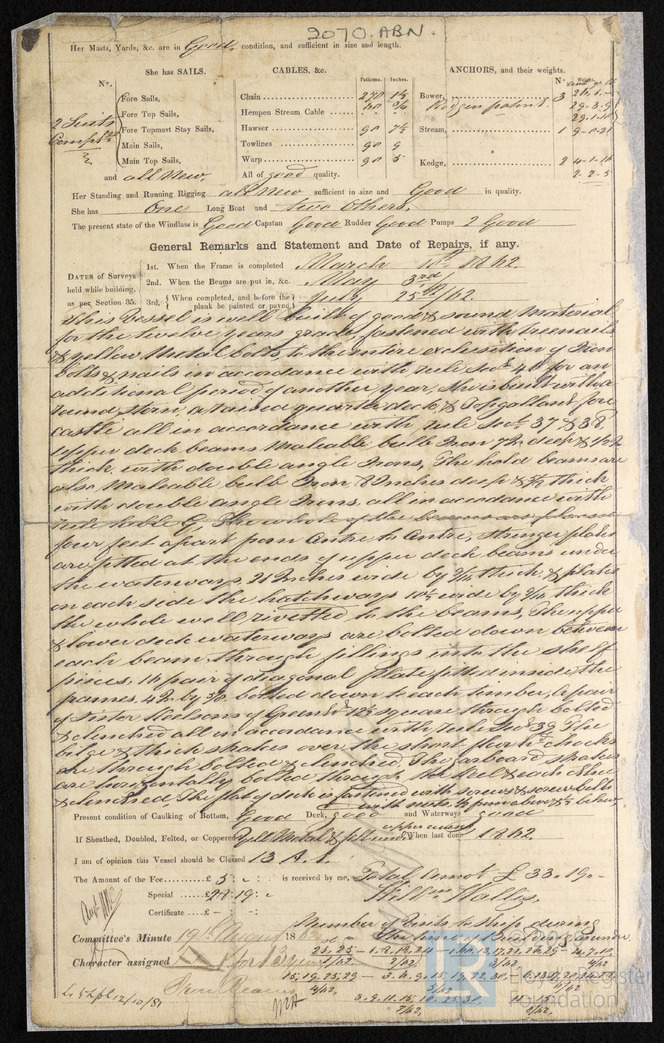 2070. ABN.
Her Masts, Yards, &c. are in Good condition, and sufficient in size and length.
She has SAILS.
CABLES, &c.
Fathoms. Inches.
ANCHORS, and their weights.
Nº. Weight.
Nº.
2 Suits Complete
Fore Sails,
Fore Top Sails,
Fore Topmast Stay Sails,
Main Sails,
Main Top Sails,
and all New
Chain 270
Hempen Stream Cable
Hawser 90 7½
Towlines 90 9
Warp 90 5
All of good quality.
Bower, 3 26.1.-
Rodgers patent 29.3.9
29.1.10
Stream, 1 9-0-21
Kedge, 2 4-1-16
2-2-5
Her Standing and Running Rigging all New sufficient in size and Good in quality.
She has One Long Boat and two others,
The present state of the Windlass is Good Capstan Good Rudder Good Pumps 2 Good
General Remarks and Statement and Date of Repairs, if any.
DATES of Surveys held while building, as per Section 35.
1st. When the Frame is completed March 1862.
2nd. When the Beams are put in, &c. May 3rd
3rd. When completed, and before the plank be painted or payed July 25th/62
This Vessel is well built of good & sound Material
for the twelve years grade, fastened with treenails
& yellow Metal bolts, to the entire exclusition of Iron
bolts & nails in accordance with rule Sec. 46 for an
additional period of another year, She is built with a
round Stern, a raised quarter deck, & Topgallant fore
castle all in accordance with rule Sec. 37 & 38,
upper deck beams Maleable bulb Iron 7½ deep &
thick with double angle Irons, The hold beams are
also Maleable bulb Iron 8 Inches deep & thick
with double angle Irons, all in accordance with
rule table G. The whole of the beams are placed
four feet apart from Centre to Centre, stringer plates
are fitted at the ends of upper deck beams under
the waterways, 21 Inches wide by thick, & plates
on each side the hatchways 10½ wide by thick
the whole well rivetted to the beams, The upper
& lower deck waterways are bolted down between
each beam through fillings into the shelf
pieces, 16 pair of diagonal plates fitted inside the
frames, bolted down to each timber, 1 pair
of Sister Keelsons of Greenht. 12½ square through bolted
& clenched all in accordance with rule Sec. 39 The
bilge & thick strakes over the short floor & chocks
are through bolted & clenched, The garboard strakes
are horizontally bolted through the Keel & each other
& clenched The flat of deck is fastened with screws & screw bolts
with nuts, from above & below
Present condition of Caulking of Bottom, Good Deck, good and Waterways good
If Sheathed, Doubled, Felted, or Coppered Yell Metal & felt under When last done 1862
I am of opinion this Vessel should be Classed 13 A.1.
The Amount of the Fee £5 : : is received by me, Total amot. £33.19.-
Special 19
Certificate £ -
Willm. Wallis,
Number of Visits to Ship during
the time of Building as under
Committee's Minute 19th August 1862
Character assigned A1 for 13 years
15, 19, 25, 29 — 3. 6. 9. 15, 19, 22.
3. 9. 11. 15, 10. 25. 30.
12/10/81
Lloyd's Register Foundation